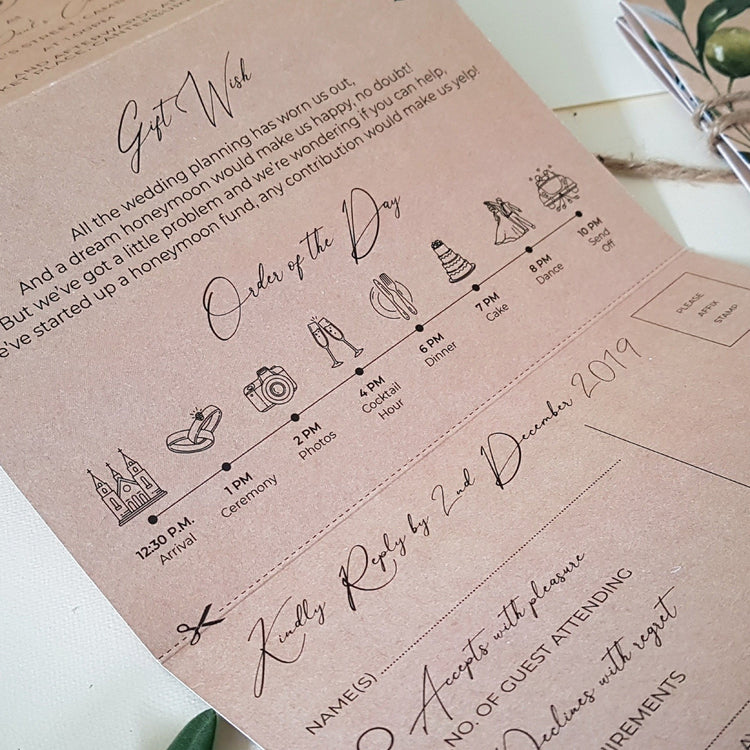 Gift Wish
All the wedding planning has worn us out,
And a dream honeymoon would make us happy, no doubt!
But we've got a little problem and we're wondering if you can help,
e've started up a honeymoon fund, any contribution would make us yelp!
Order of the Day
12:30 P.M.
Arrival
1 PM
Ceremony
2 PM
Photos
4 PM
Cocktail
Hour
6 PM
Dinner
7 PM
Cake
8 PM
Dance
10 PM
Send
Off
PLEASE
AFFIX
STAMP
Kindly Reply by 2nd December 2019
NAME(S)
Accepts with pleasure
NO. OF GUEST ATTENDING
Declines with regret